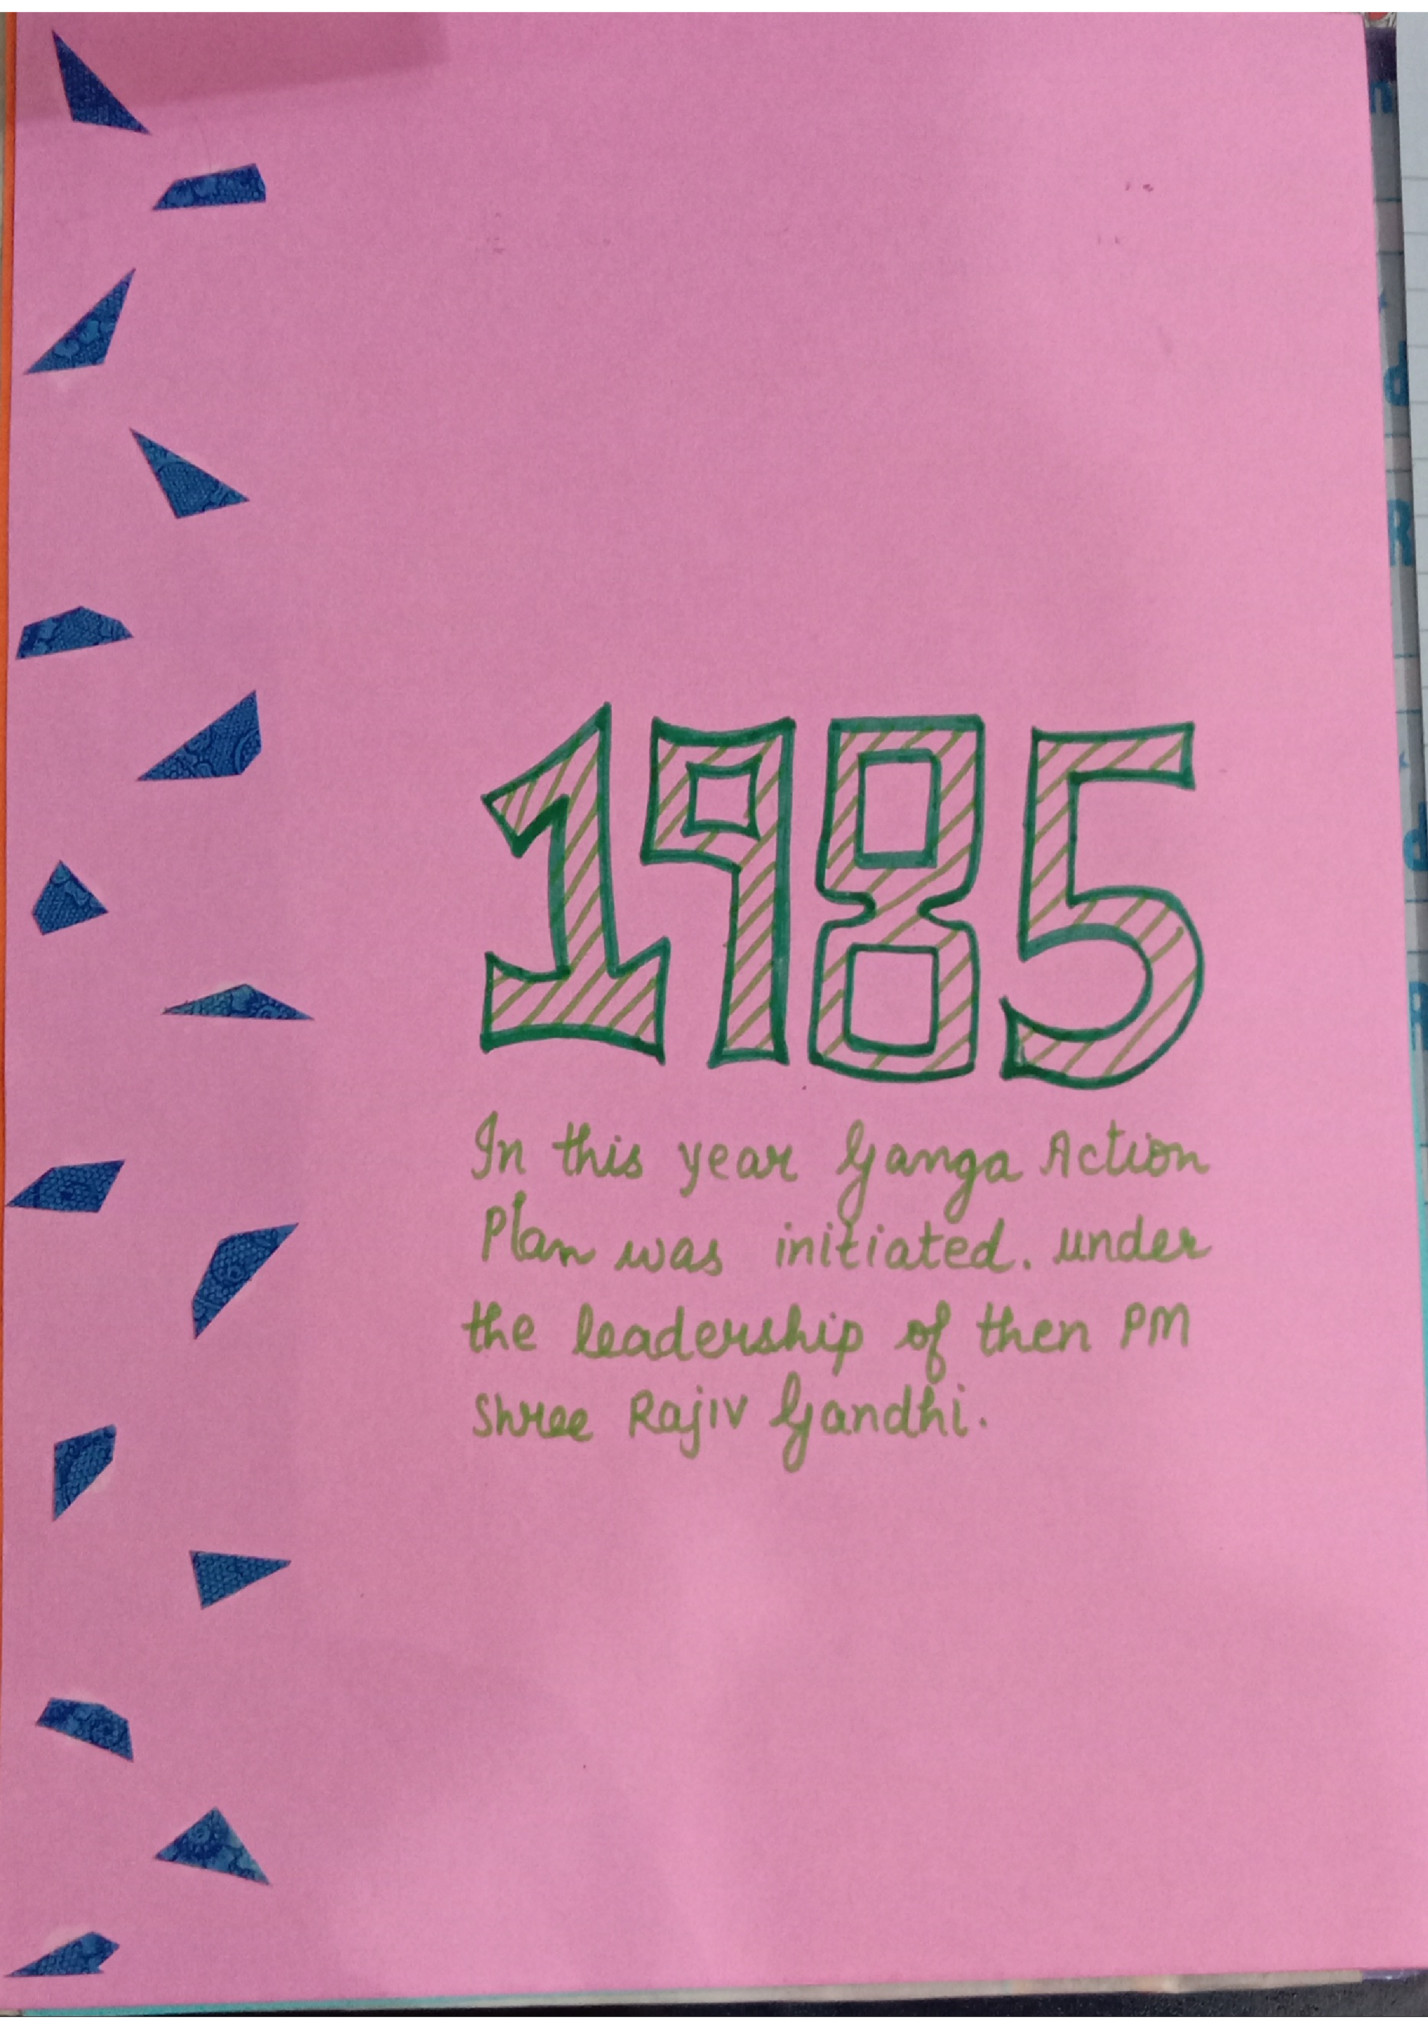 1985
In this year Ganga Action
Plan was initiated. under
the leadership of then PM
Shree Rajiv Gandhi.